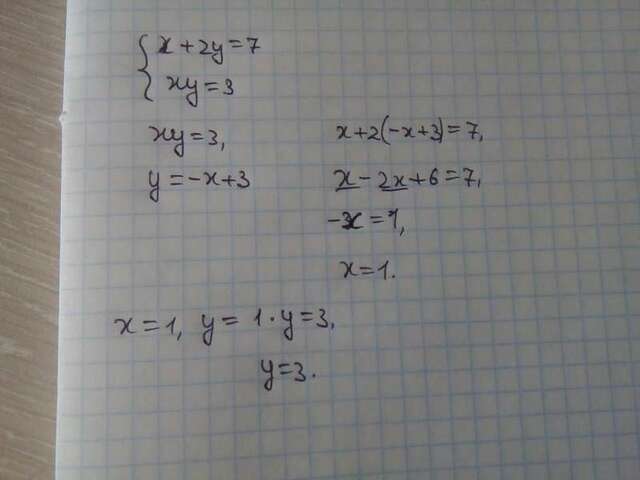 { x + 2y = 7
xy = 3
xy = 3,
y = -x + 3
x + 2(-x + 3) = 7,
x - 2x + 6 = 7,
= 1,
x = 1.
x = 1, y = 1 · y = 3,
y = 3.